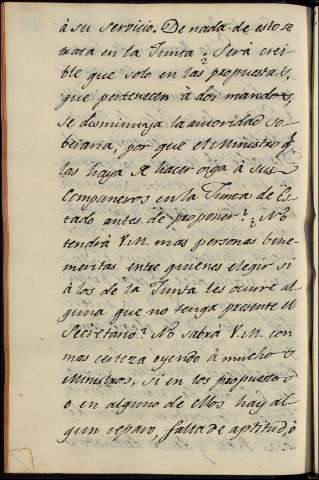 á su servicio. De nada de esto se
trata en la Junta? Será crei
ble que solo en las propuestas,
que pertenecen á dos mandos,
se disminuya la autoridad so
berana, por que el Ministro qe.
las haya de hacer oiga á sus
Compañeros en la Junta de Es
tado antes de proponer? No
tendrá V.M. mas personas bene
meritas entre quienes elegir si
á los de la Junta les ocurre al
guna que no tenga presente el
Secretario? No sabrá V.M. con
mas certeza oyendo á muchos
Ministros, si en los propuestos
o en alguno de ellos hay al
gun reparo, falta de aptitud, o